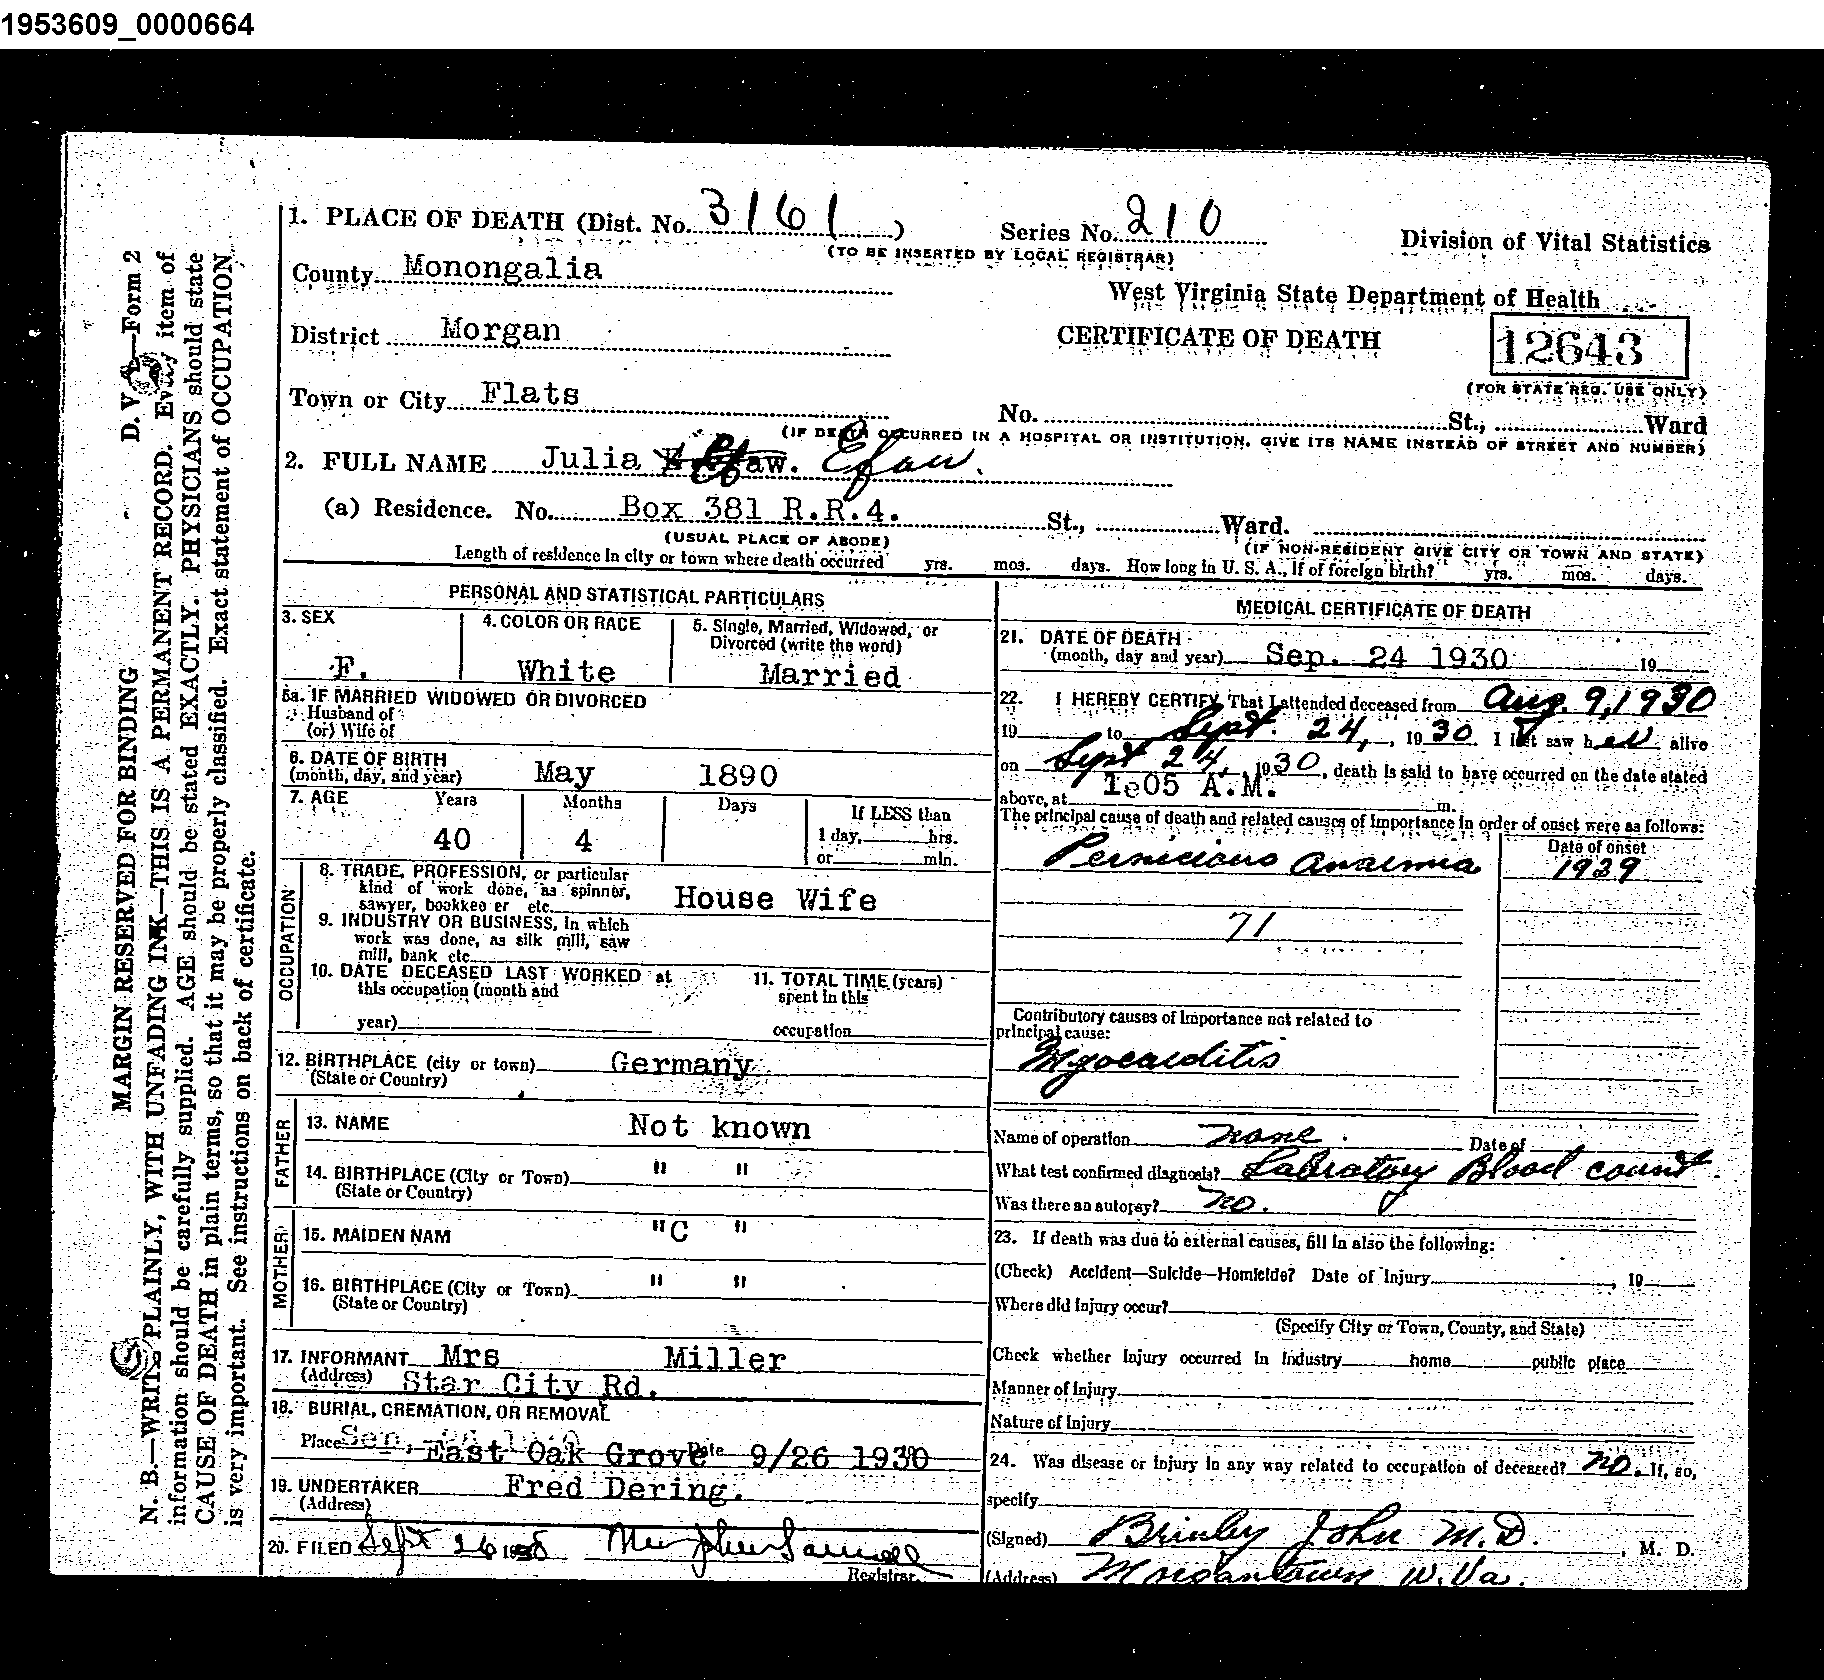 1953609_0000664
1. PLACE OF DEATH (Dist. No. 3161 ) Series No. 210 Division of Vital Statistics
(TO BE INSERTED BY LOCAL REGISTRAR)
County Monongalia
West Virginia State Department of Health
District Morgan CERTIFICATE OF DEATH 12643
(FOR STATE REG. USE ONLY)
Town or City Flats No. St., Ward
(IF DEATH OCCURRED IN A HOSPITAL OR INSTITUTION, GIVE ITS NAME INSTEAD OF STREET AND NUMBER)
2. FULL NAME Julia Efaw.
(a) Residence. No. Box 381 R.R.4. St., Ward.
(USUAL PLACE OF ABODE) (IF NON-RESIDENT GIVE CITY OR TOWN AND STATE)
Length of residence in city or town where death occurred yrs. mos. days. How long in U. S. A., if of foreign birth? yrs. mos. days.
PERSONAL AND STATISTICAL PARTICULARS
3. SEX 4. COLOR OR RACE 5. Single, Married, Widowed, or
Divorced (write the word)
F. White Married
5a. IF MARRIED WIDOWED OR DIVORCED
Husband of
(or) Wife of
6. DATE OF BIRTH
(month, day, and year) May 1890
7. AGE Years Months Days If LESS than
1 day, hrs.
40 4 or min.
OCCUPATION
8. TRADE, PROFESSION, or particular
kind of work done, as spinner,
sawyer, bookkee er etc. House Wife
9. INDUSTRY OR BUSINESS, in which
work was done, as silk mill, saw
mill, bank etc.
10. DATE DECEASED LAST WORKED at
this occupation (month and
year)
11. TOTAL TIME (years)
spent in this
occupation
12. BIRTHPLACE (city or town) Germany
(State or Country)
FATHER
13. NAME Not known
14. BIRTHPLACE (City or Town) " "
(State or Country)
MOTHER
15. MAIDEN NAM "C "
16. BIRTHPLACE (City or Town) " "
(State or Country)
17. INFORMANT Mrs Miller
(Address) Star City Rd.
18. BURIAL, CREMATION, OR REMOVAL
Place East Oak Grove Date 9/26 1930
19. UNDERTAKER Fred Dering.
(Address)
20. FILED Sept 26
Registrar.
MEDICAL CERTIFICATE OF DEATH
21. DATE OF DEATH
(month, day and year) Sep. 24 1930 19
22. I HEREBY CERTIFY, That I attended deceased from Aug. 9, 1930
19 to Sept. 24, 1930. I last saw her alive
on Sept 24, 1930, death is said to have occurred on the date stated
above, at 1e05 A.M. m.
The principal cause of death and related causes of importance in order of onset were as follows:
Date of onset
Pernicious Anaemia 1939
71
Contributory causes of importance not related to
principal cause:
Myocarditis
Name of operation none. Date of
What test confirmed diagnosis? Labratory Blood count
Was there an autopsy? no.
23. If death was due to external causes, fill in also the following:
(Check) Accident—Suicide—Homicide? Date of Injury , 19
Where did injury occur?
(Specify City or Town, County, and State)
Check whether injury occurred in industry home public place
Manner of Injury
Nature of Injury
24. Was disease or injury in any way related to occupation of deceased? no. If, so,
specify
(Signed) Brinley John M.D. , M. D.
(Address) Morgantown W.Va.
D. V. —Form 2
MARGIN RESERVED FOR BINDING
N. B.—WRITE PLAINLY, WITH UNFADING INK—THIS IS A PERMANENT RECORD. Every item of
information should be carefully supplied. AGE should be stated EXACTLY. PHYSICIANS should state
CAUSE OF DEATH in plain terms, so that it may be properly classified. Exact statement of OCCUPATION
is very important. See instructions on back of certificate.